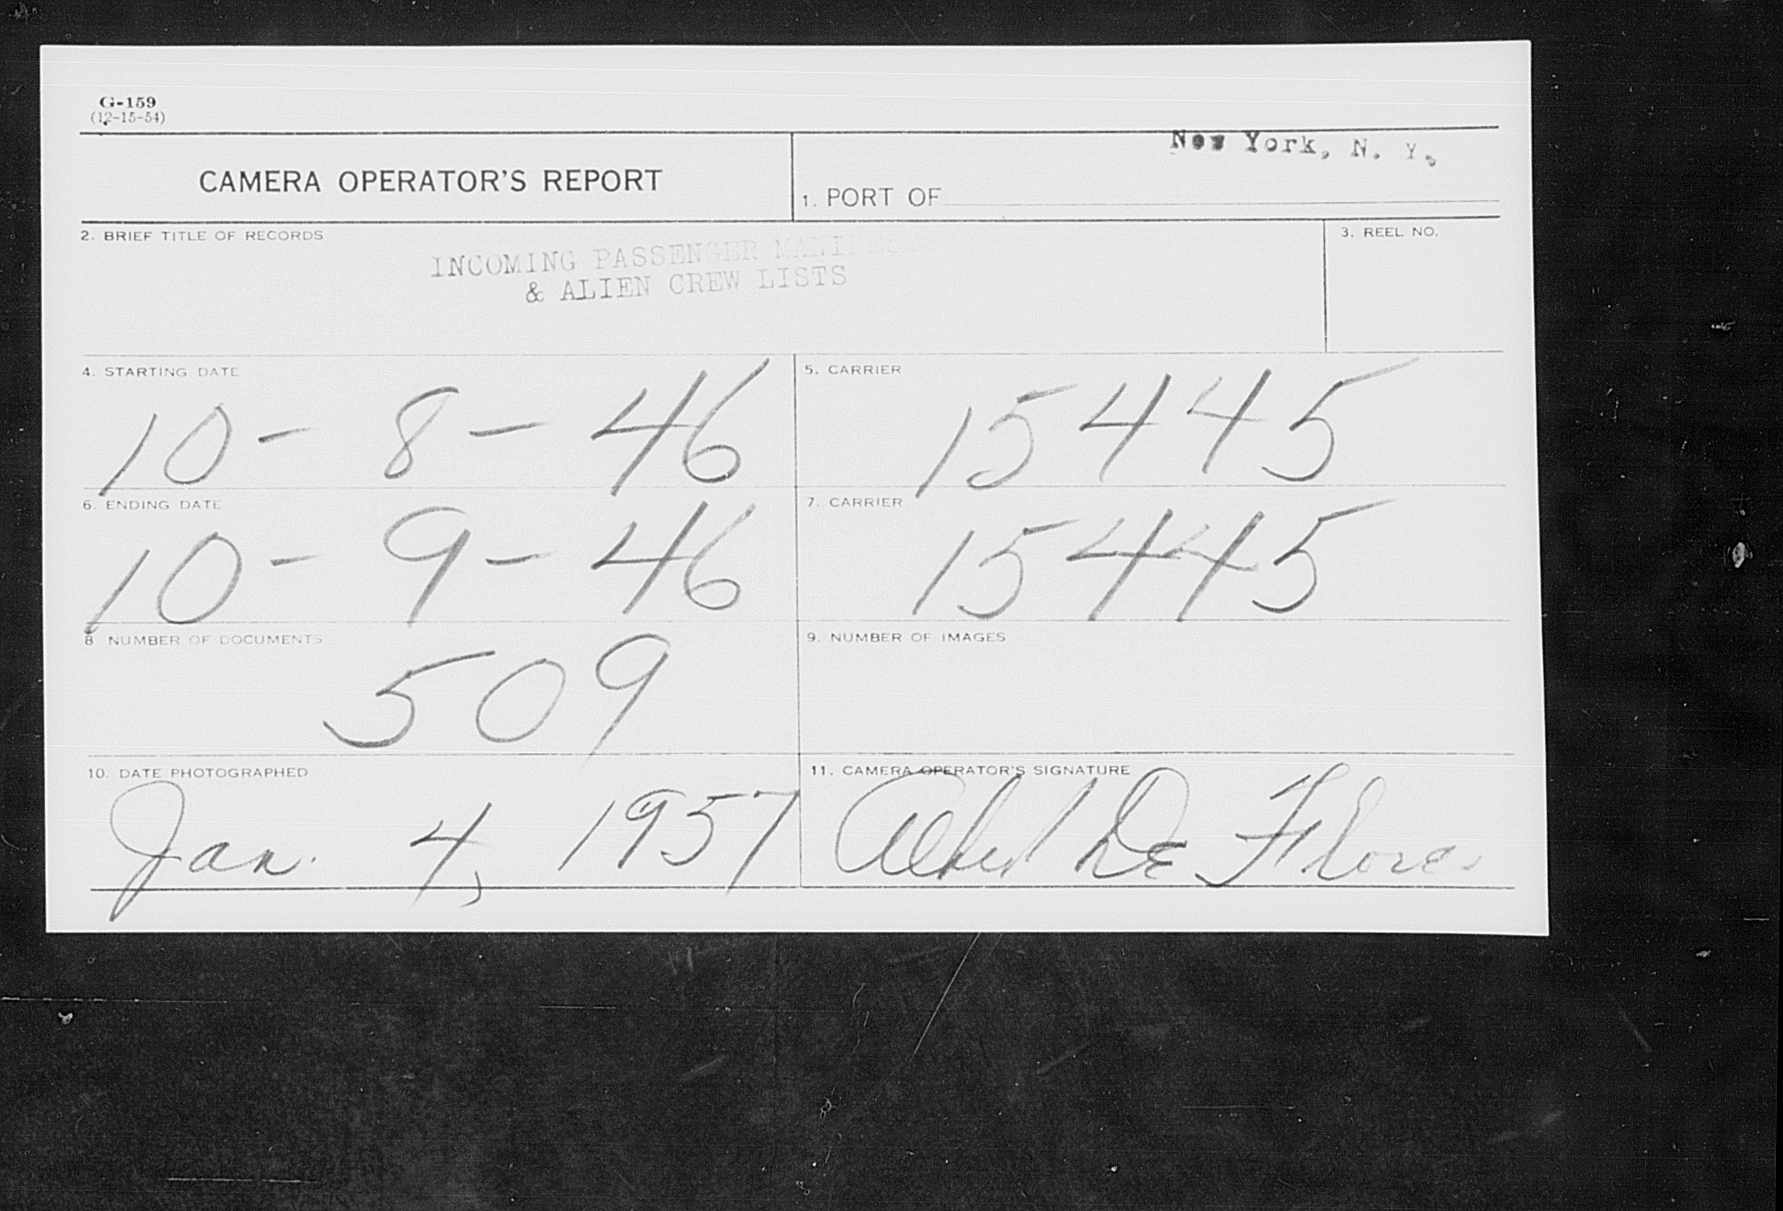 G-159
(12-15-54)
CAMERA OPERATOR'S REPORT
New York, N. Y.
1. PORT OF
2. BRIEF TITLE OF RECORDS
INCOMING PASSENGER
& ALIEN CREW LISTS
3. REEL NO.
4. STARTING DATE
10-8-46
5. CARRIER
15445
6. ENDING DATE
10-9-46
7. CARRIER
15445
8 NUMBER OF DOCUMENTS
509
9. NUMBER OF IMAGES
10. DATE PHOTOGRAPHED
Jan. 4, 1957
11. CAMERA OPERATOR'S SIGNATURE
De